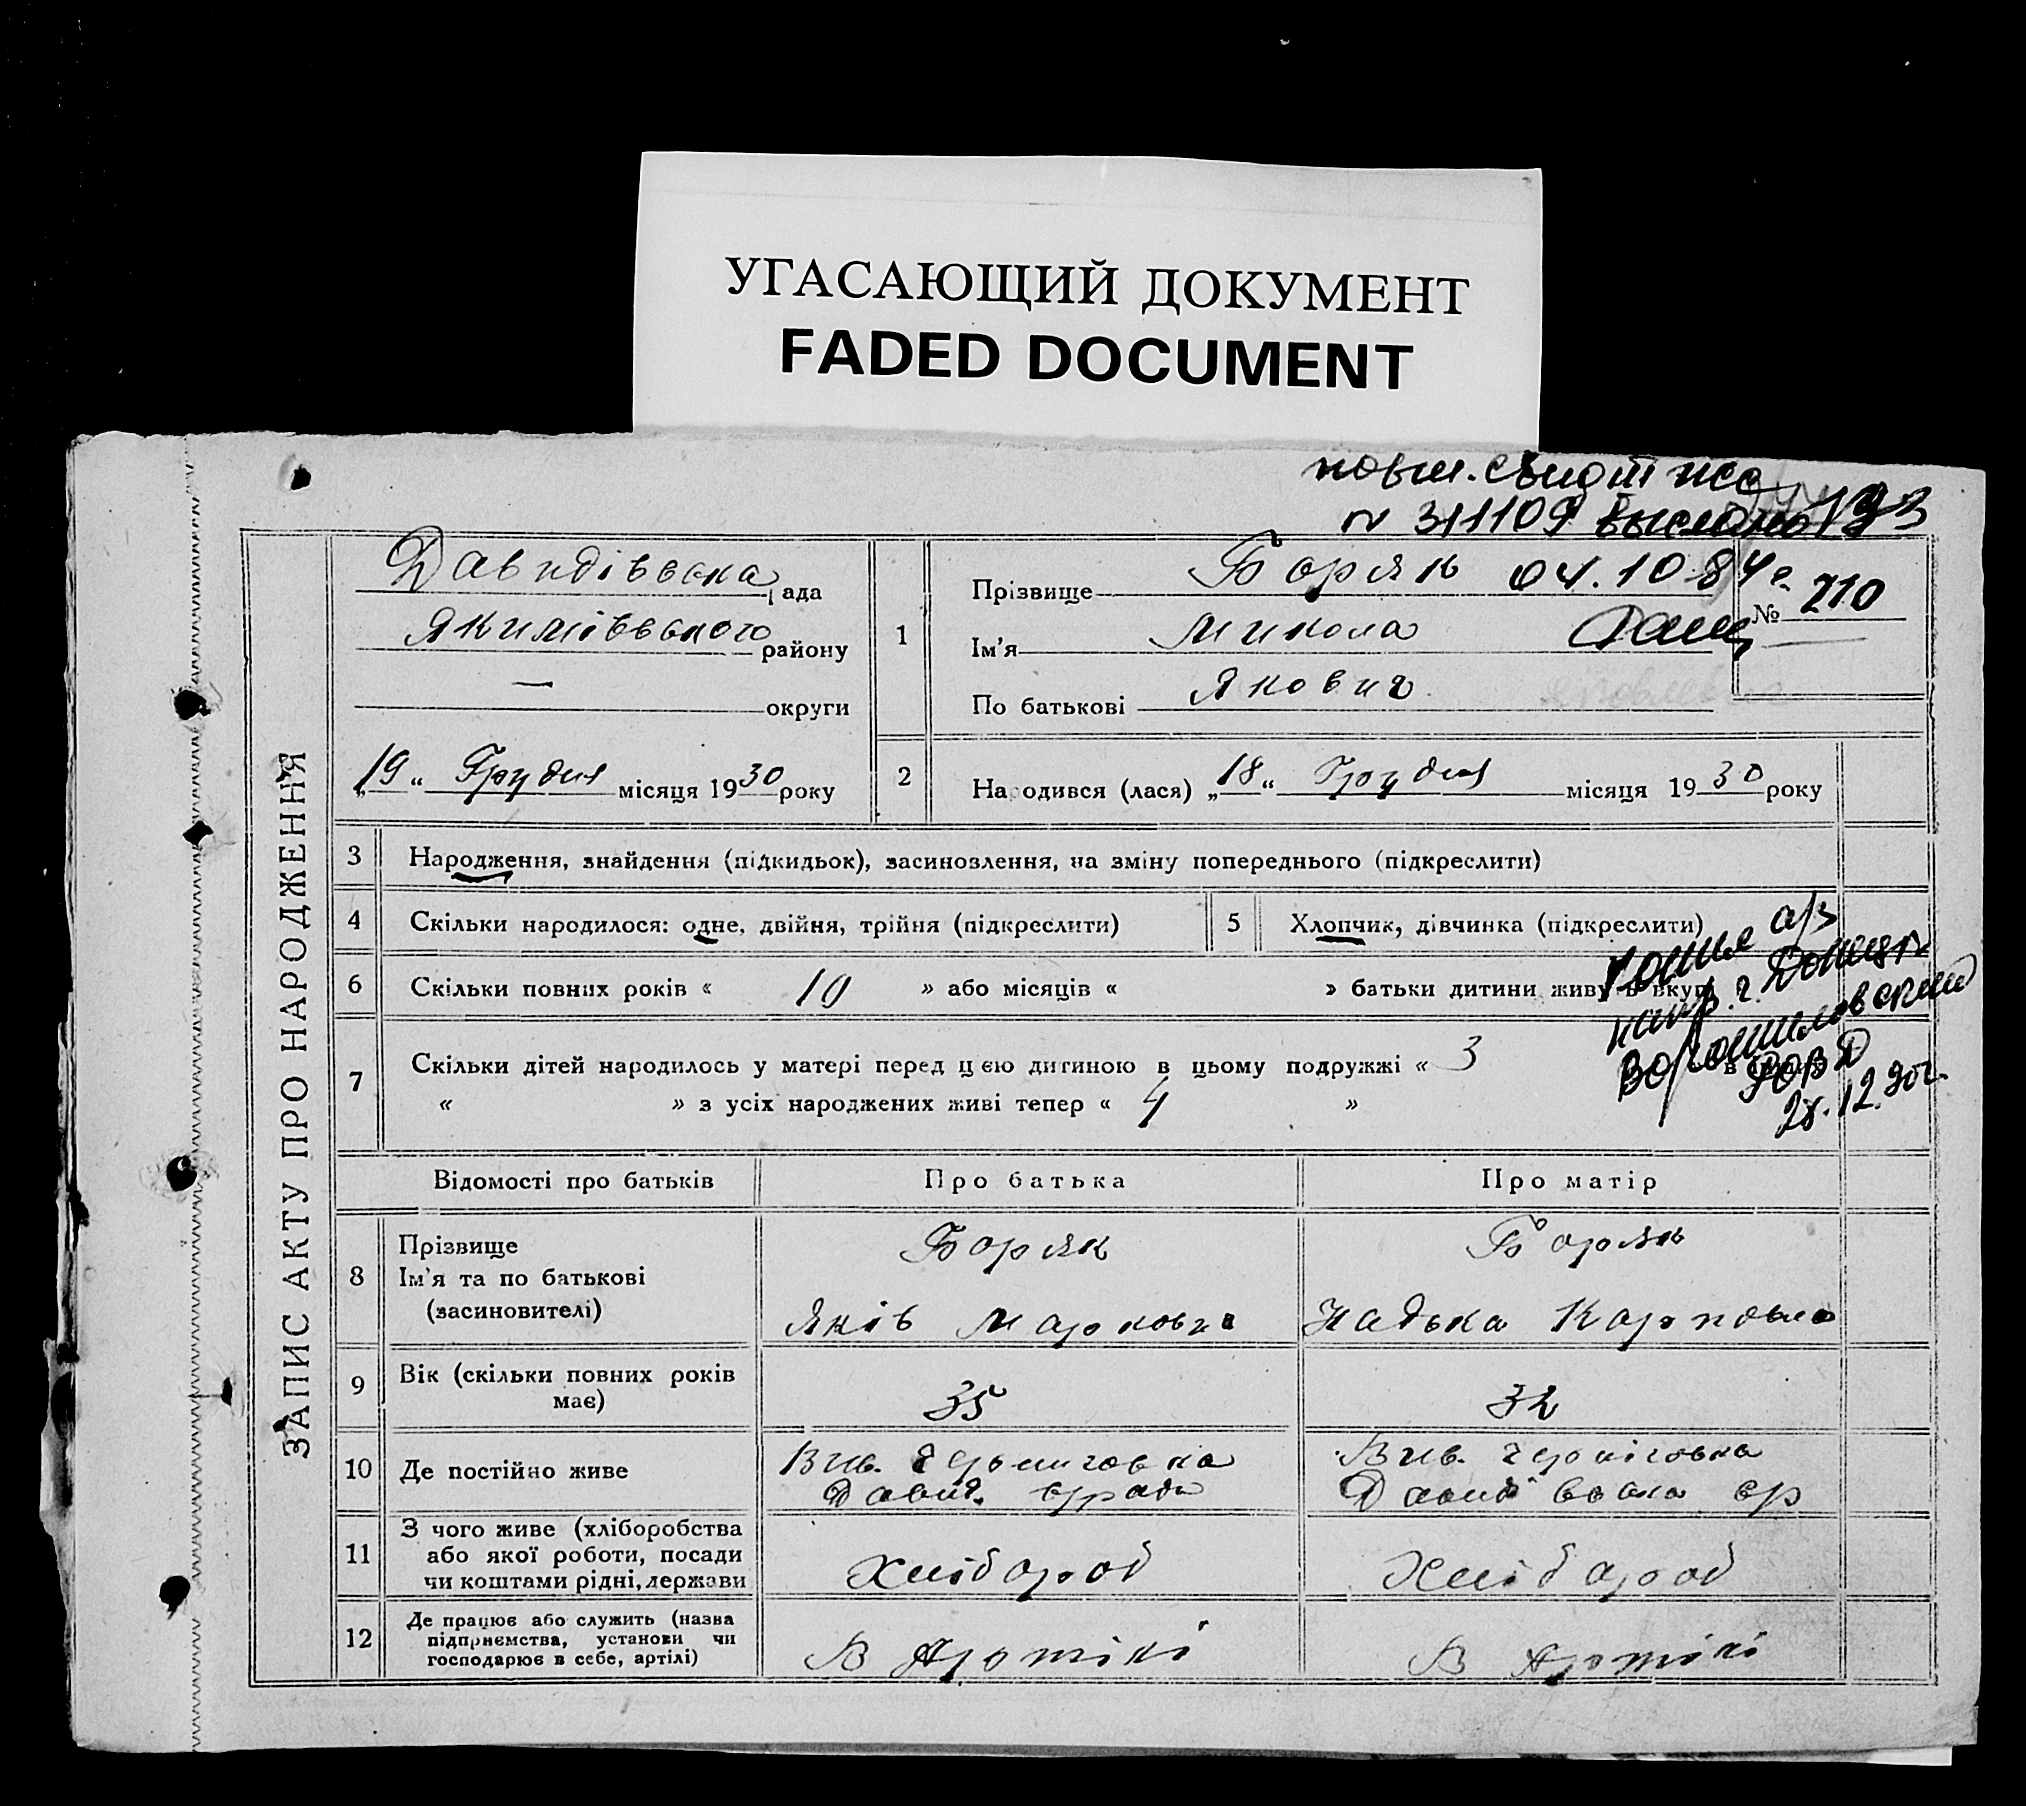 УГАСАЮЩИЙ ДОКУМЕНТ
FADED DOCUMENT
новш.
N 311109 выслано 193
ЗАПИС АКТУ ПРО НАРОДЖЕННЯ
Давидівська рада
Якимівського району
— округи
„19“ Грудня місяця 1930 року
1
Прізвище Боряк 04.10.84 г.
Ім'я Микола
По батькові Якович
№ 210
2
Народився (лася) „18“ Грудня місяця 1930 року
3 Народження, знайдення (підкидьок), засиновлення, на зміну попереднього (підкреслити)
4 Скільки народилося: одне, двійня, трійня (підкреслити)
5 Хлопчик, дівчинка (підкреслити)
6 Скільки повних років « 10 » або місяців « » батьки дитини живуть вкупі
7 Скільки дітей народилось у матері перед цією дитиною в цьому подружжі « 3
« » з усіх народжених живі тепер « 4 »
Копия а/з
напр. г. Донецк
Ворошиловский
РОВД
28.12.90г.
Відомості про батьків
Про батька
Про матір
8
Прізвище
Ім'я та по батькові
(засиновителі)
Боряк
Яків Маркович
Боряк
Надька Карповна
9
Вік (скільки повних років
має)
35
32
10 Де постійно живе
Вив. Черниговка
Давид. сради
Вив. Черніговка
Давидівська ср
11
З чого живе (хліборобства
або якої роботи, посади
чи коштами рідні, держави
Хлібороб
Хлібороб
12
Де працює або служить (назва
підприємства, установи чи
господарює в себе, артілі)
В Артілі
В Артілі